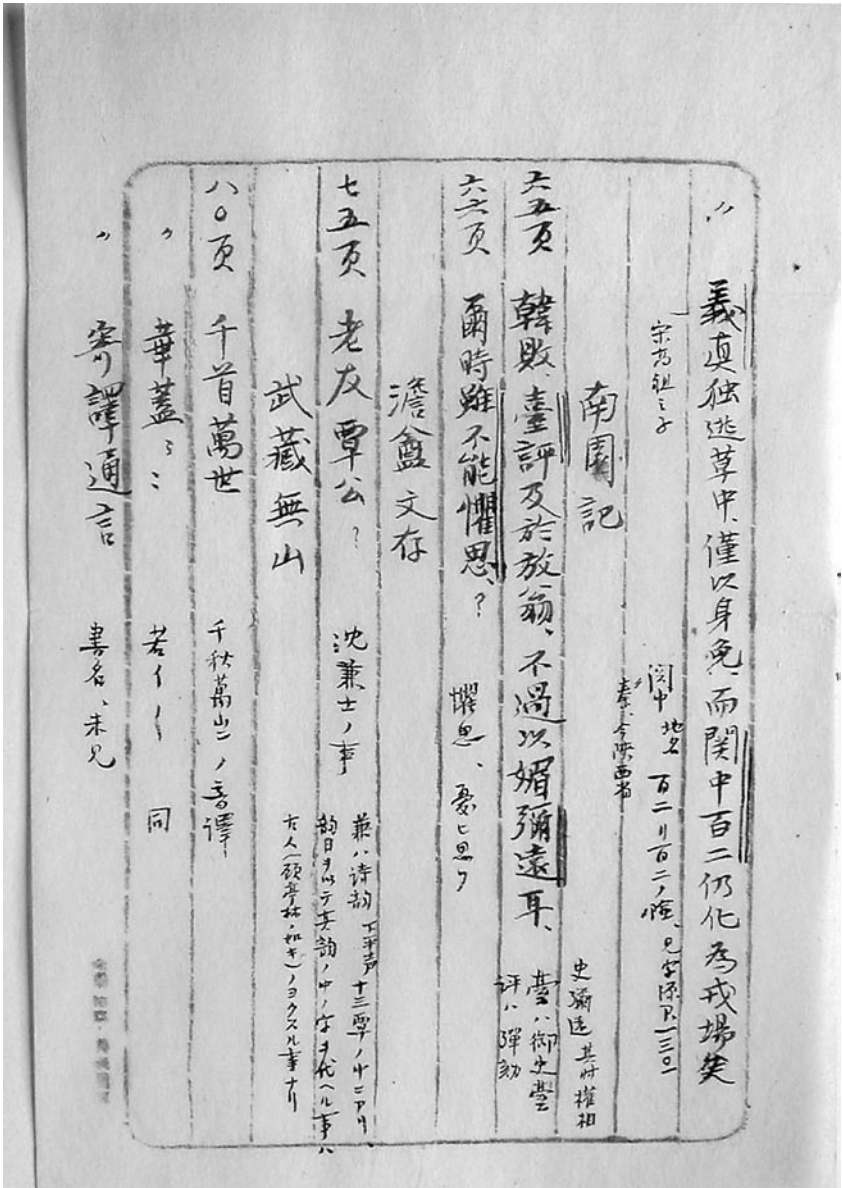 〃 義真独逃草中、僅以身免、而関中百二仍化為戎場矣
宋高祖之子
関中 地名 百二リ百二ノ険、見字源P.一三〇一
秦、今陝西省
南園記
史彌遠 其时權相
六五頁 韓敗、臺評及於放翁、不過以媚彌遠耳、
臺ハ御史臺
評ハ彈劾
六六頁 爾時雖不能懼思、? 懼思、憂ヒ思フ
澹盦文存
七五頁 老友覃公? 沈兼士ノ事
兼ハ诗韵 下平声 十三覃ノ中ニアリ、
韵目ヲ以テ其韵ノ中ノ字ヲ代ヘル事ハ
古人(顧亭林ノ如キ)ノヨクスル事ナリ
武藏無山
八〇頁 千首萬世 千秋萬歳ノ音譯
〃 華蓋〻〻 若イ〱 同
〃 寄譯通言 書名、未見